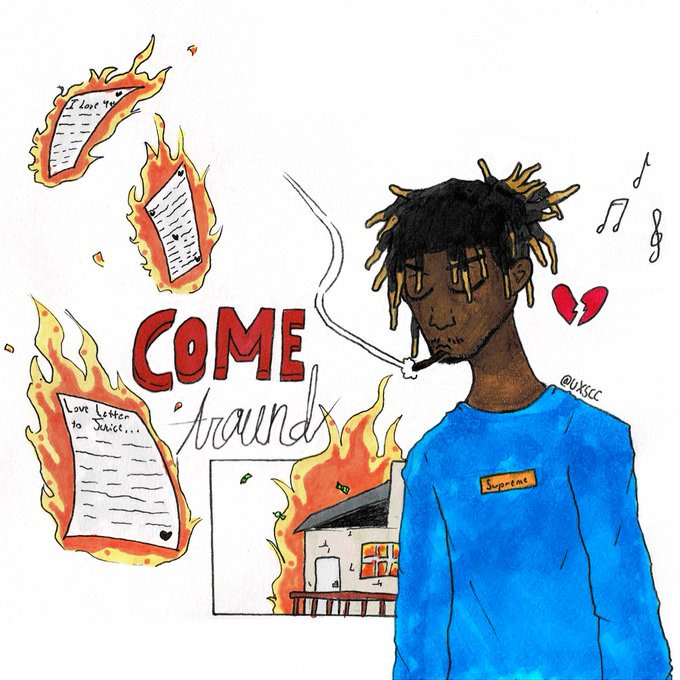 I Love You
COME
Around
Love Letter
to Juice...
@UXSCC
Supreme